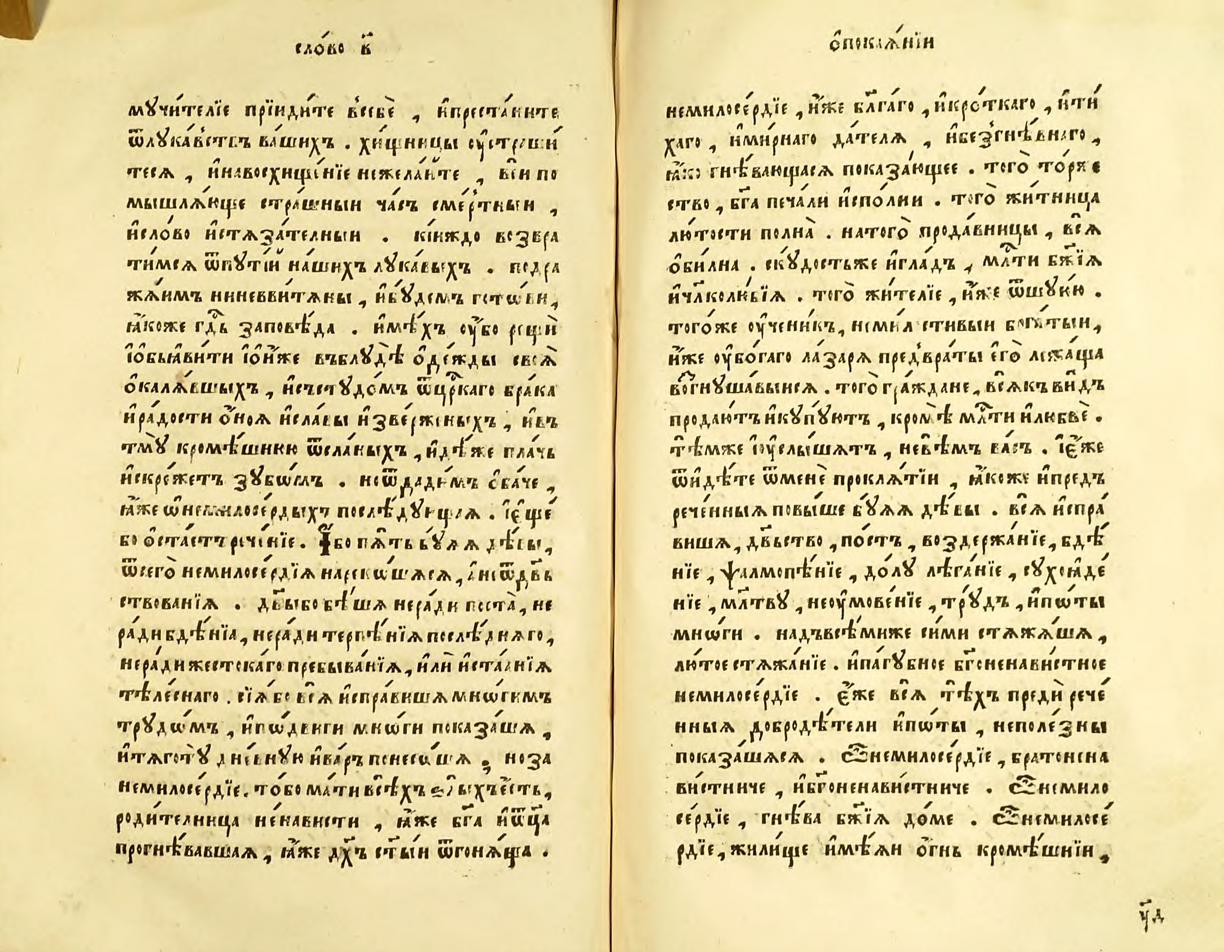 сло́во в҃
мꙋчи́телїе прїиди́те в̾себѐ , и҆преста́ните
ѿлꙋка́вствъ ва́шихъ . хи́щницы оу҆страши́
тесѧ , и҆навосхище́нїе нежела́йте , вси́ по
мышлѧ́юще стра́шныи ча́съ сме́ртныи ,
и҆сло́во и҆стѧза́телныи . кі́иждо возвра
ти́мсѧ ѿпꙋті́й на́шихъ лꙋка́выхъ . подра
жа́имъ ниневвитѧ́ны , и҆бꙋ́демъ гото́ви ,
ꙗ҆́коже гд҇ь запове́да . и҆мѣ́хъ оу҆́бо рещѝ
і҆ѡбьѧви́ти і҆ѻ҆́ниже въблꙋ́дѣ ѻ҆де́жды своѧ̀
ѻ҆калѧ́вшыхъ , и҆състꙋдо́мъ ѿца́р҇каго бра́ка
и҆ра́дости ѻ҆́ноѧ и҆сла́вы и҆зве́рженыхъ , и҆въ
тмꙋ̀ кромѣ́шнюю ѿсла́ныхъ , и҆дѣ́же пла́чь
и҆скре́жетъ зꙋбѡ́мъ . неѿдади́мъ ѻ҆ба́че ,
ꙗ҆́же ѡ҆немилосе́рдыхъ послѣ́дꙋющаѧ . і҆є҆ще́
бо ѻ҆ста́стъ рече́нїе . И҆́бо пѧ́ть бꙋ́ѧѧ дѣ́вы ,
ѿсегѡ̀ немилосе́рдїѧ нареко́шасѧ , а҆неѿдѣ́в
ствованїѧ . дѣ́вы бо бѣ́шѧ неради поста̀ , не
ра́ди бдѣ́нїѧ , нера́ди терпѣ́нїѧ послѣ́днѧго ,
нера́ди же́стокаго пребыва́нїѧ , и҆лѝ и҆ста́ѧнїѧ
тѣле́снаго . сїѧ́ бо всѧ̀ и҆спра́вишѧ мно́гимъ
трꙋдѡ́мъ , и҆по́двиги мнѡ́ги показа́шѧ ,
и҆тѧготꙋ̀ дне́внꙋю и҆ва́ръ понесо́шѧ , ноза
немилосе́рдїе . то́ бо ма́ти всѣ́хъ ѕлы́хъ є҆́сть ,
роди́телница не́нависти , ꙗ҆́же бг҃а и҆ѻ҆ц҃а̀
прогнѣ́вавшаѧ , ꙗ҆́же дх҃ъ ст҃ы́и ѿгонѧ́ща .
ѻ҆покаѧ́нїи
немилосе́рдїе , и҆́же бл҃га́го , и҆кро́ткаго , и҆ти́
хаго , и҆ми́рнаго да́телѧ , и҆безгнѣ́внаго ,
ꙗ҆́ко гнѣ́вающасѧ показа́ющее . тогѡ̀ то́рже
ство , бг҃а печа́ли и҆спо́лни . тогѡ̀ жи́тница
лю́тости полна̀ . натогѡ̀ прода́вницы , всѧ̀
ѻ҆би́лна . скꙋ́дость же и҆гла́дъ , мл҇ти бж҃їѧ
и҆чл҃колю́бїѧ . тогѡ̀ жи́телїе , и҆́же ѿшꙋ́юю .
тогѡ́же оу҆чени́къ , неми́лостивыи бога́тыи ,
и҆́же оу҆бо́гаго ла́зарѧ пред̾враты̀ є҆гѡ̀ лежа́ща
возгнꙋша́выисѧ . тогѡ̀ гра́ждане , всѧ́къ ви́дъ
продаю́тъ и҆кꙋпꙋ́ютъ , кромѣ̀ мл҇ти и҆любвѐ .
тѣ́мже і҆ꙋслы́шатъ , невѣ́мъ ва́съ . і҆є҆́же
ѿиди́те ѿменѐ проклѧ́тїи , ꙗ҆́коже и҆предъ
рече́нныѧ повы́ше бꙋ́ѧѧ дѣ́вы . всѧ̀ и҆спра́
вишѧ , дв҃ьство , по́стъ , воздержа́нїе , бдѣ́
нїе , ѱалмопѣ́нїе , до́лꙋ лѣга́нїе , сꙋхоꙗде́
нїе , мл҃твꙋ , неоу҆мове́нїе , трꙋ́дъ , и҆по́ты
мнѡ́ги . надъвсѣ́миже си́ми стѧжа́шѧ ,
лю́тое стѧжа́нїе . и҆па́гꙋбное бг҃оненави́стное
немилосе́рдїе . є҆́же всѧ̀ тѣ́хъ пре́ди рече́
нныѧ добродѣ́тели и҆по́ты , неполе́зны
показа́шасѧ . Ѽнемилосе́рдїе , братонена
ви́стниче , и҆бг҃оненави́стниче . Ѽнемило
се́рдїе , гнѣ́ва бж҃їѧ до́ме . Ѽнемилосе́
рдїе , жили́ще и҆мѣ́ѧи ѻ҆́гнь кромѣ́шнїи ,
ч҃д